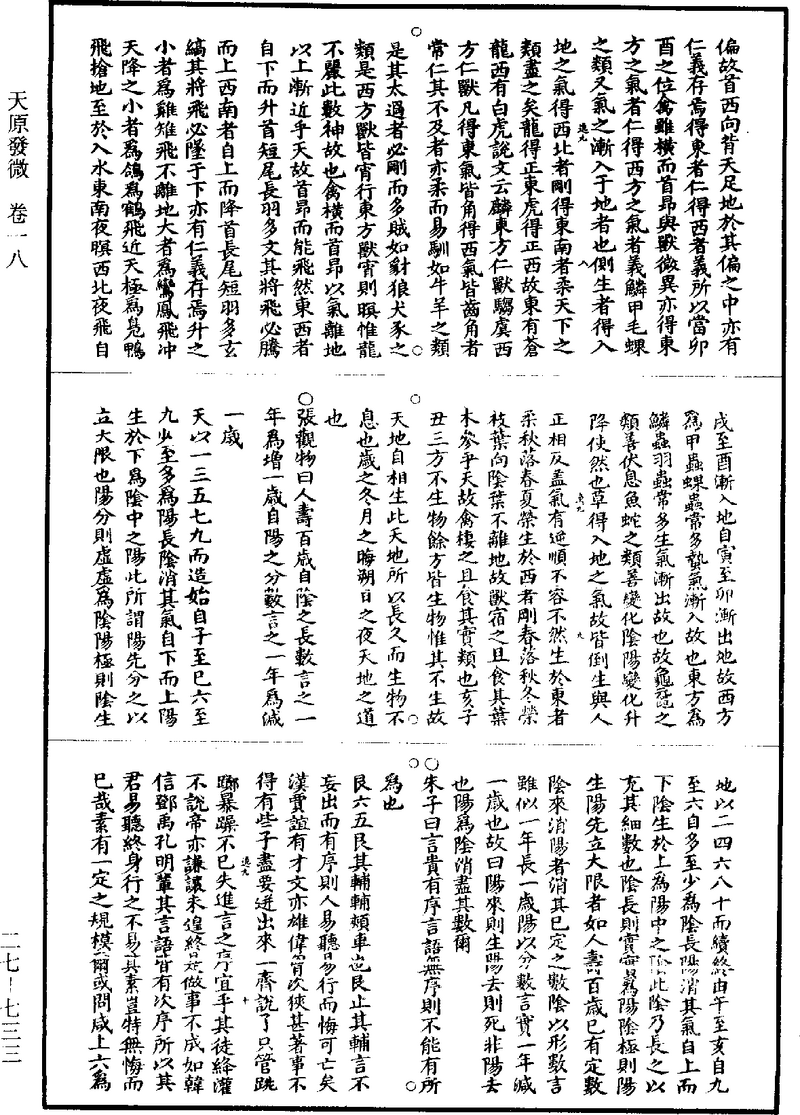 天原發微 卷一八
二七—七三三
偏故首西向背天足地於其偏之中亦有
仁義存焉得東者仁得西者義所以當卯
酉之位禽雖橫而首昂與獸微異亦得東
方之氣者仁得西方之氣者義鱗甲毛蜾
之類又氣之漸入于地者也側生者得入
地之氣得西北者剛得東南者柔天下之
類盡之矣龍得正東虎得正西故東有蒼
龍西有白虎說文云麟東方仁獸騶虞西
方仁獸凡得東氣皆角得西氣皆齒角者
常仁其不及者亦柔而易馴如牛羊之類
是其太過者必剛而多賊如豺狼犬豕之
類是西方獸皆宵行東方獸宵則暝惟龍
不麗此數神故也禽橫而首昂以氣離地
以上漸近乎天故首昂而能飛然東西者
自下而升首短尾長羽多文其將飛必騰
而上西南者自上而降首長尾短羽多玄
縞其將飛必墜于下亦有仁義存焉升之
小者為雞雉飛不離地大者為鸞鳳飛冲
天降之小者為鴿為鶴飛近天極為鳧鴨
飛搶地至於入水東南夜暝西北夜飛自
戌至酉漸入地自寅至卯漸出地故西方
為甲蟲蜾蟲常多蟄氣漸入故也東方為
鱗蟲羽蟲常多生氣漸出故也故龜黿之
類善伏息魚蛇之類善變化陰陽變化升
降使然也草得入地之氣故皆倒生與人
正相反蓋氣有逆順不容不然生於東者
柔秋落春夏榮生於西者剛春落秋冬榮
枝葉向陰葉不離地故獸宿之且食其葉
木參乎天故禽棲之且食其實類也亥子
丑三方不生物餘方皆生物惟其不生故
天地自相生此天地所以長久而生物不
息也歲之冬月之晦朔日之夜天地之道
也
○張觀物曰人壽百歲自陰之長數言之一
年為增一歲自陽之分數言之一年為減
一歲
天以一三五七九而造始自子至巳六至
九少至多為陽長陰消其氣自下而上陽
生於下為陰中之陽此所謂陽先分之以
立大限也陽分則虛虛為陰陽極則陰生
地以二四六八十而續終由午至亥自九
至六自多至少為陰長陽消其氣自上而
下陰生於上為陽中之陰此陰乃長之以
充其細數也陰長則實實為陽陰極則陽
生陽先立大限者如人壽百歲已有定數
陰來消陽者消其已定之數陰以形數言
雖似一年長一歲陽以分數言實一年減
一歲也故曰陽來則生陽去則死非陽去
也陽為陰消盡其數爾
○朱子曰言貴有序言語無序則不能有所
為也
艮六五艮其輔輔頰車也艮止其輔言不
妄出而有序則人易聽易行而悔可亡矣
漢賈誼有才文亦雄偉胷次狹甚著事不
得有些子盡要迸出來一齊說了只管跳
躑暴躁不已失進言之序宜乎其徒絳灌
不說帝亦謙讓未遑終是做事不成如韓
信鄧禹孔明輩其言語皆有次序所以其
君易聽終身行之不易其素豈特無悔而
已哉素有一定之規模爾或問咸上六為